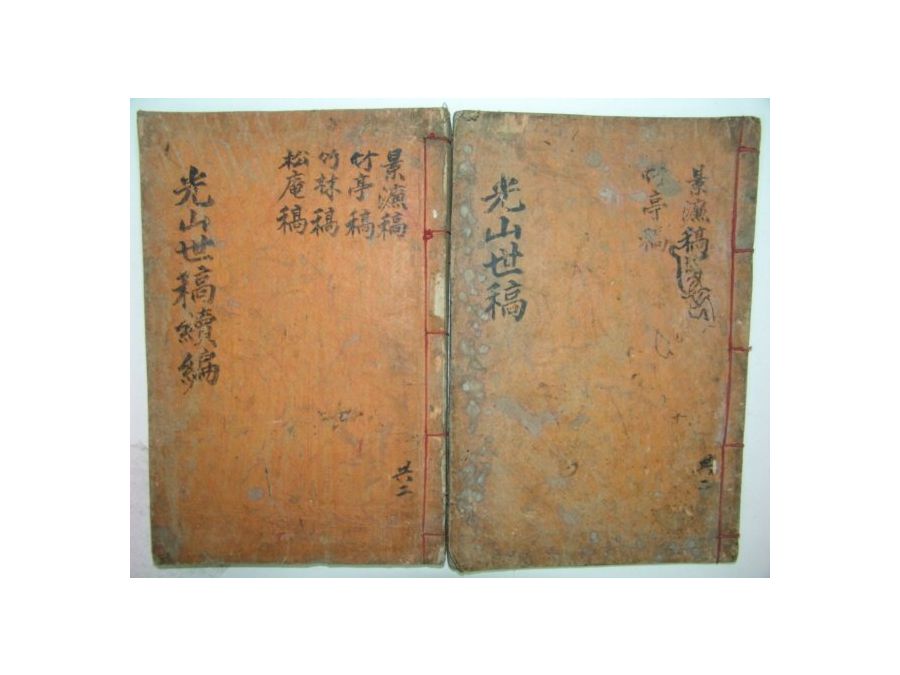 景濂稿
竹亭稿
光山世稿
共二
景濂稿
竹亭稿
竹林稿
松庵稿
光山世稿續編
共二